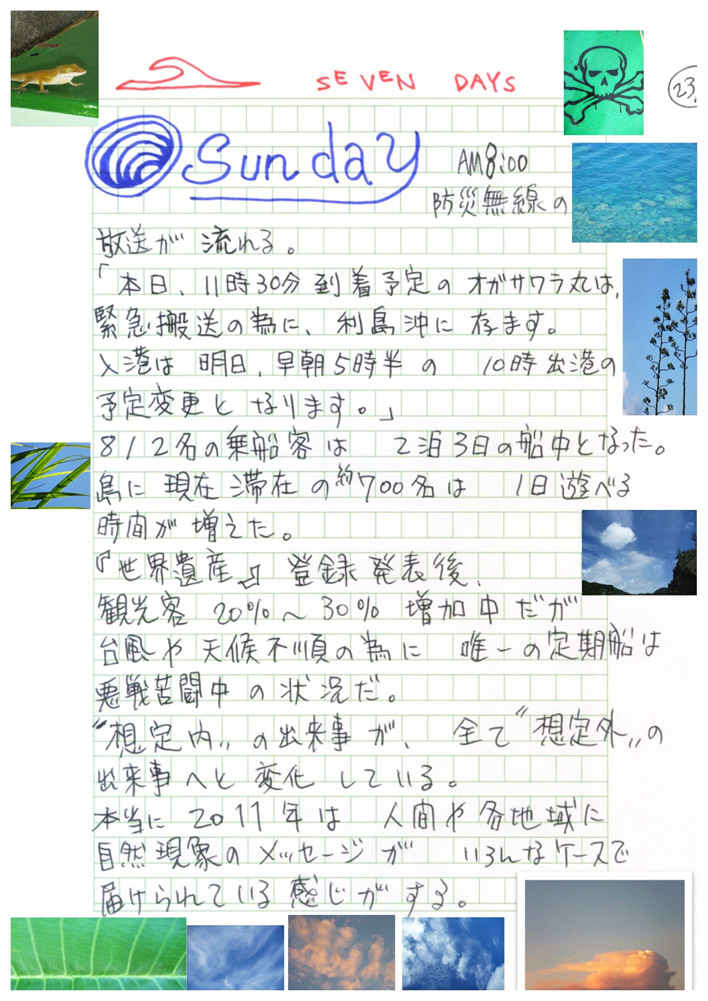 SEVEN DAYS
23.
Sunday AM8:00
防災無線の
放送が 流れる。
「本日、11時30分 到着予定の オガサワラ丸は、
緊急搬送の為に、利島沖に 存ます。
入港は 明日、早朝5時半の 10時出港の
予定変更と なります。」
812名の乗船客は 2泊3日の船中となった。
島に 現在 滞在 の約700名は 1日遊べる
時間が 増えた。
『世界遺産』 登録発表後、
観光客 20%〜30% 増加中だが
台風や 天候不順の為に 唯一の定期船は
悪戦苦闘中の状況だ。
“想定内„の出来事が、 全て“想定外„の
出来事へと 変化 している。
本当に 2011年は 人間や各地域に
自然現象の メッセージが いろんなケースで
届けられている 感じがする。